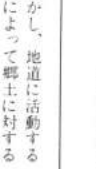 かし、地道に活動する
によって郷土に対する